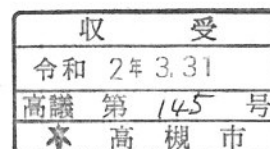 収受
令和 2年 3.31
高議 第 145 号
高槻市